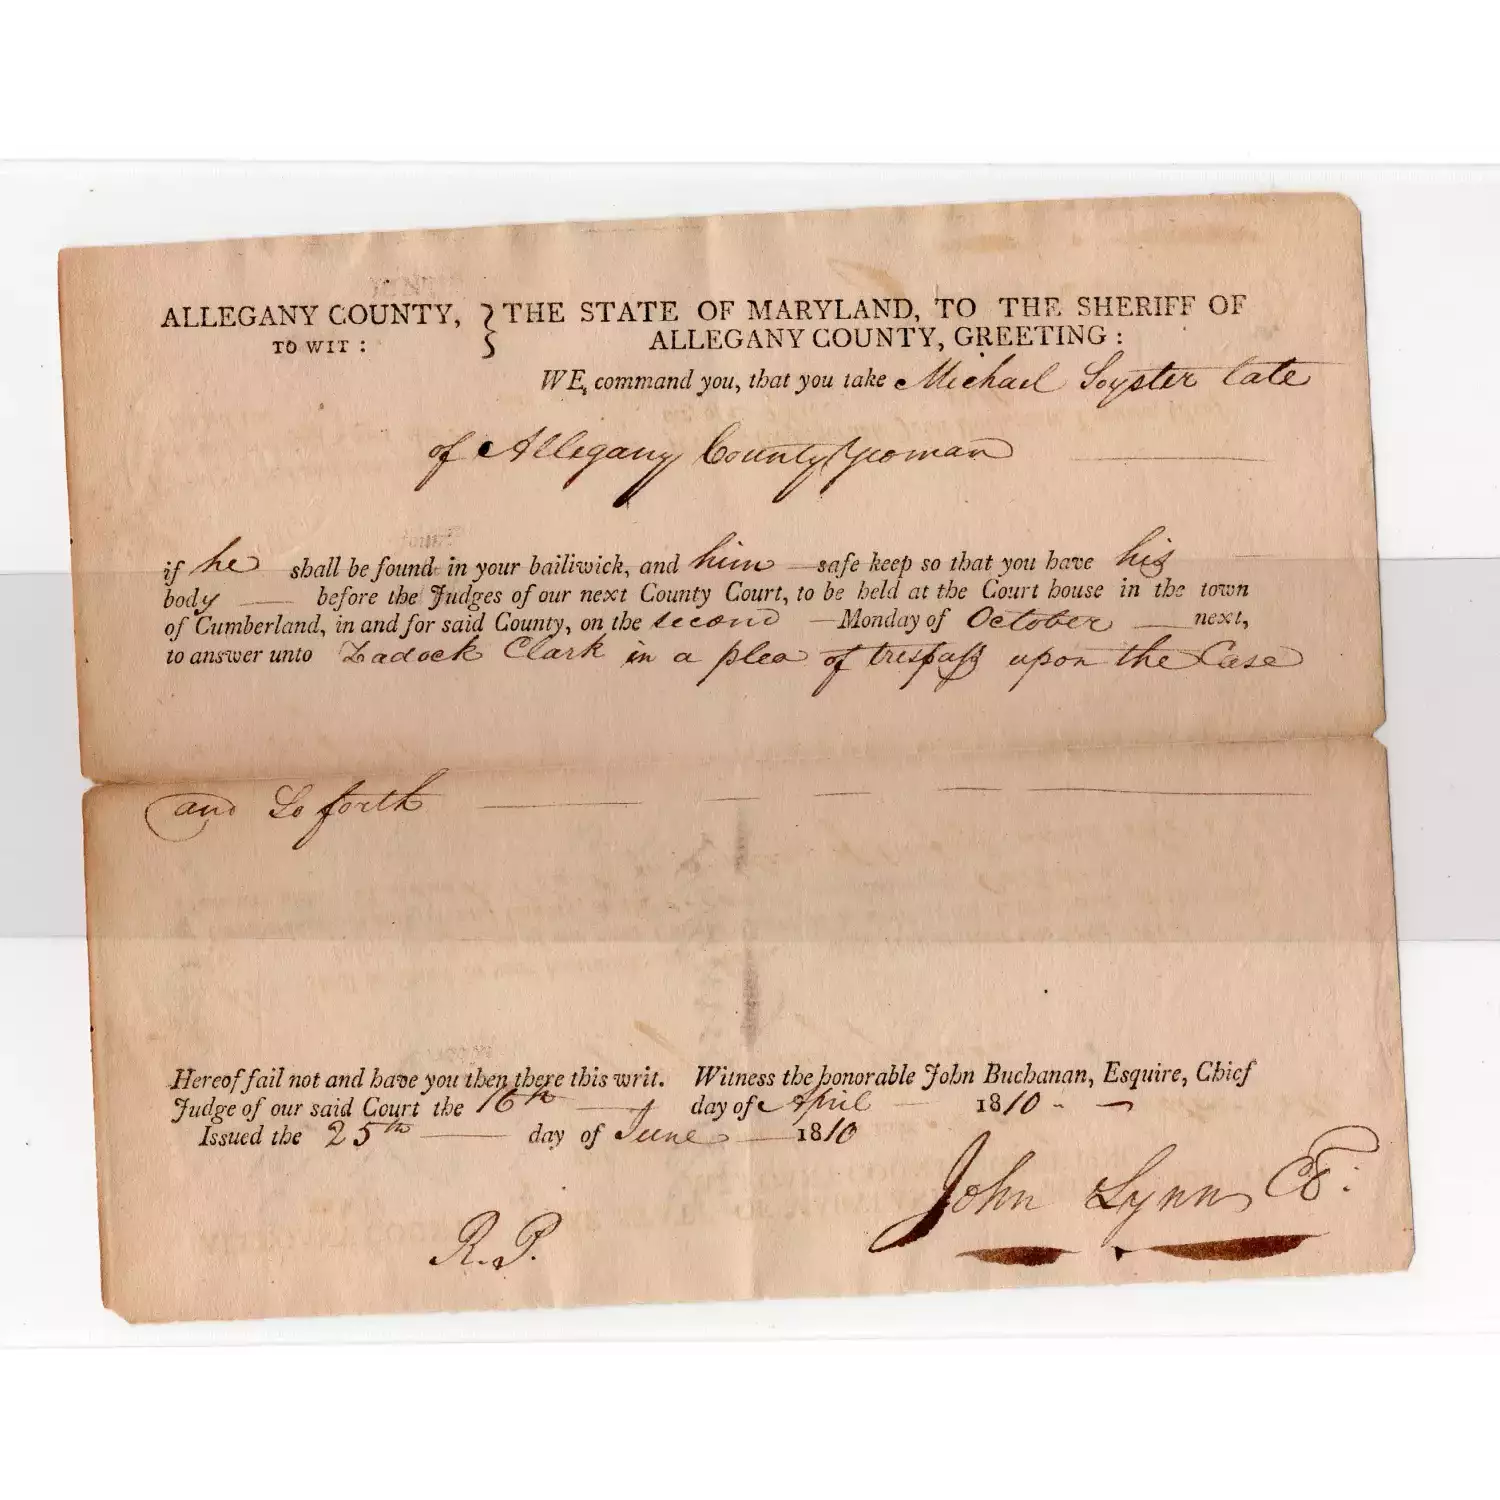 ALLEGANY COUNTY, THE STATE OF MARYLAND, TO THE SHERIFF OF
TO WIT : ALLEGANY COUNTY, GREETING :
WE, command you, that you take Michael Soyster late
of Allegany County Yeoman
if he shall be found in your bailiwick, and him safe keep so that you have his
body before the Judges of our next County Court, to be held at the Court house in the town
of Cumberland, in and for said County, on the second Monday of October next,
to answer unto Zadock Clark in a plea of trespass upon the Case
and So forth
Hereof fail not and have you then there this writ. Witness the honorable John Buchanan, Esquire, Chief
Judge of our said Court the 16th day of April 1810
Issued the 25th day of June 1810
John Lynn
R.P.